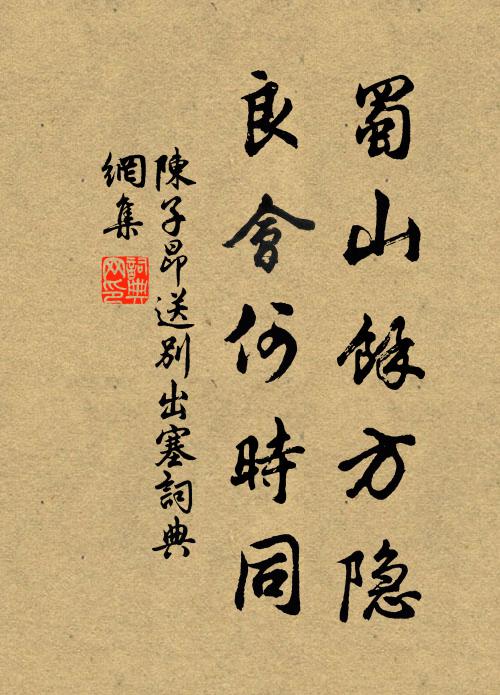 蜀山餘方隐
良會何時同
陳子昂送别出塞詞典
網集
詞典
网印